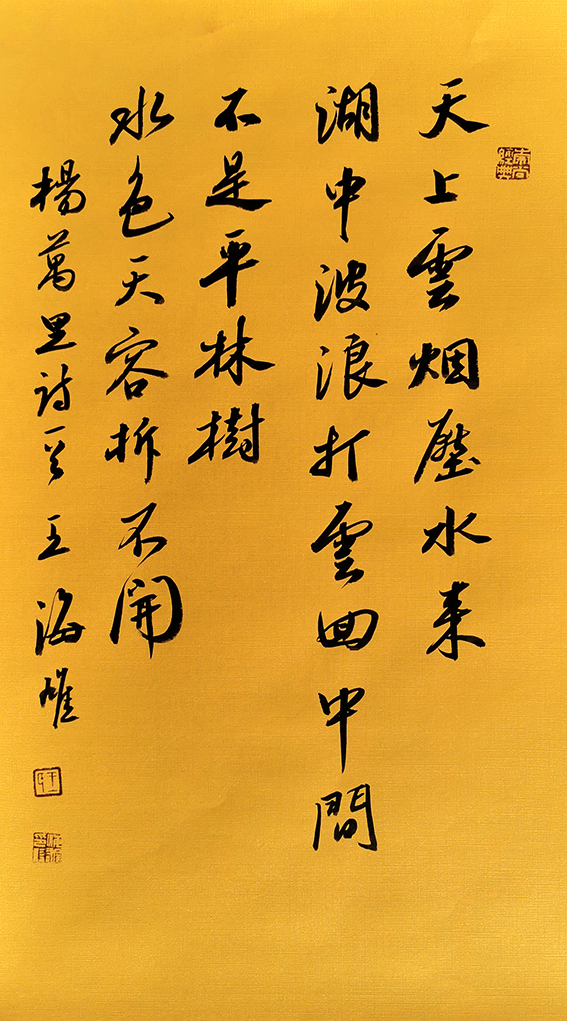 崇尚經典
天上雲烟壓水来
湖中波浪打雲回中間
不是平林樹
水色天容拆不開
楊萬里詩一首 王海雄